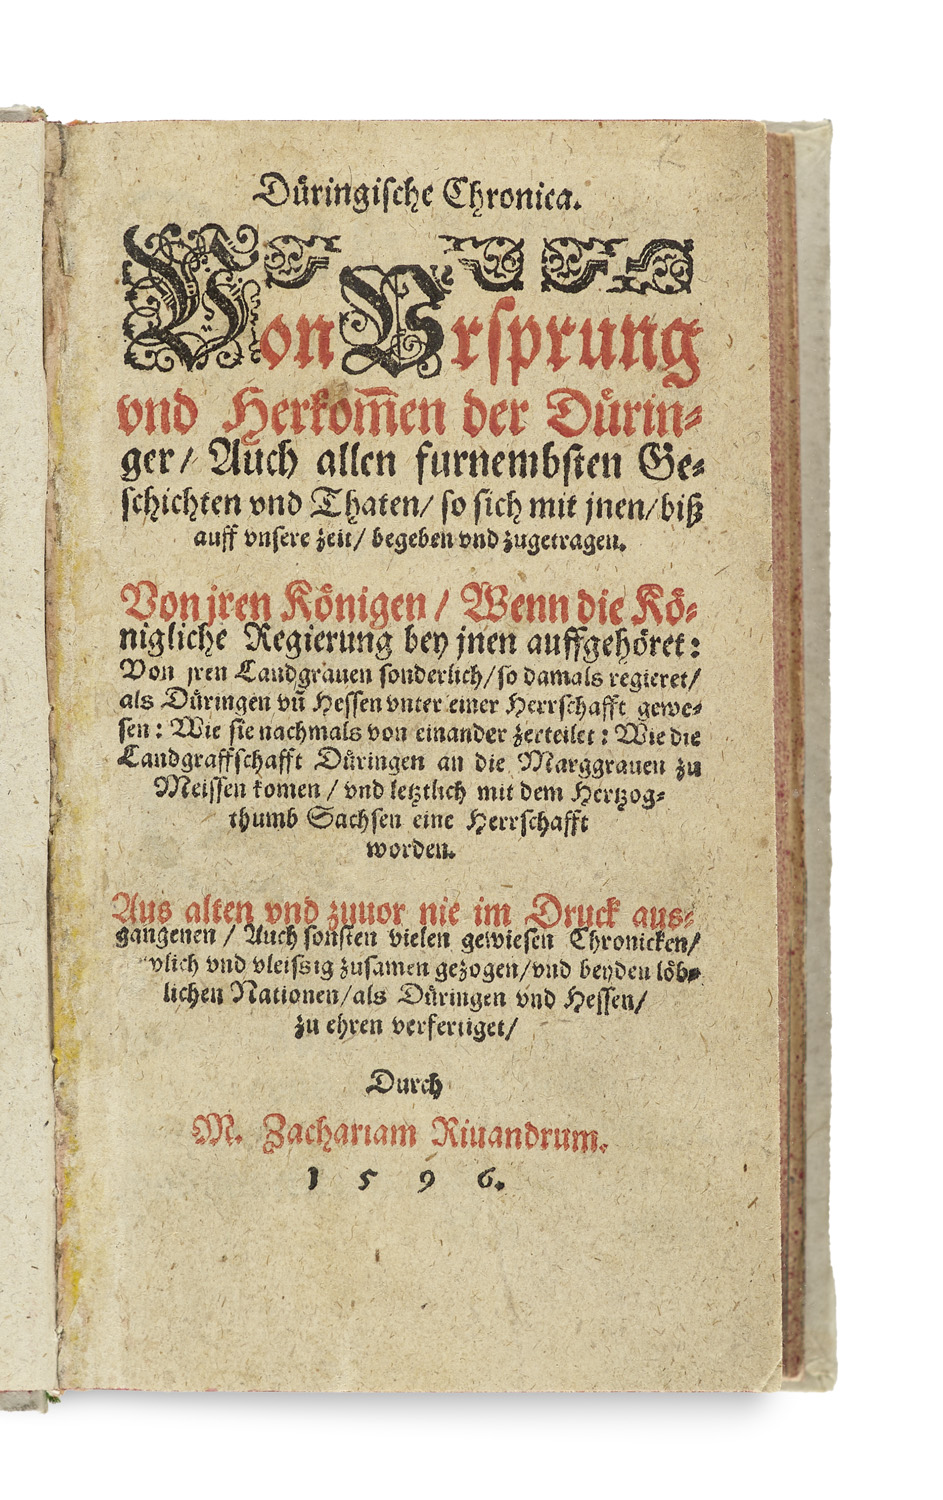 Düringische Chronica.
Von Vrsprung
vnd Herkom̃en der Dürin-
ger/ Auch allen furnembsten Ge-
schichten vnd Thaten/ so sich mit jnen/ biß
auff vnsere zeit/ begeben vnd zugetragen.
Von jren Königen/ Wenn die Kö-
nigliche Regierung bey jnen auffgehöret:
Von jren Landgrauen sonderlich/ so damals regieret/
als Düringen vñ Hessen vnter einer Herrschafft gewe-
sen: Wie sie nachmals von einander zerteilet: Wie die
Landgraffschafft Düringen an die Marggrauen zu
Meissen komen/ vnd letztlich mit dem Hertzog-
thumb Sachsen eine Herrschafft
worden.
Aus alten vnd zuuor nie im Druck aus-
gangenen/ Auch sonsten vielen gewiesen Chronicken/
vnd vleissig zusamen gezogen/ vnd beyden löb-
lichen Nationen/ als Düringen vnd Hessen/
zu ehren verfertiget/
Durch
M. Zachariam Riuandrum.
1596.